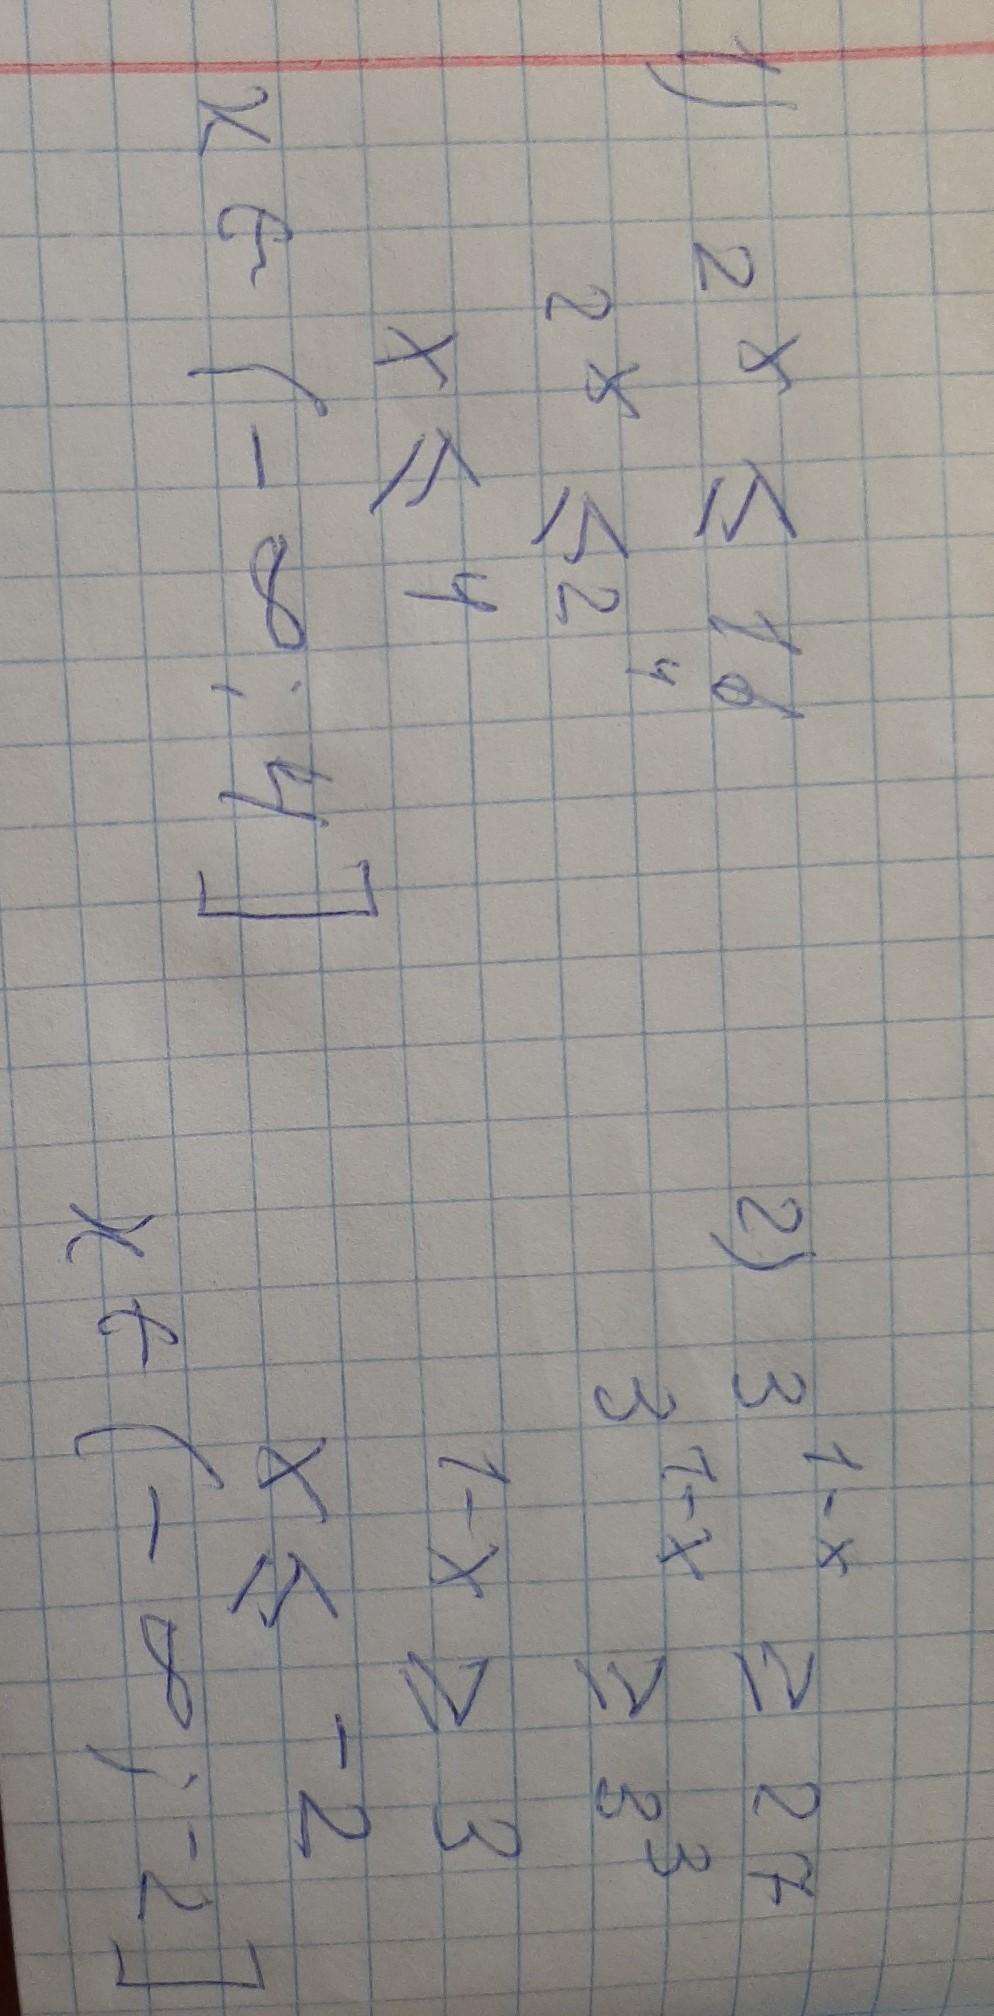 1) 2^x ≤ 16
2^x ≤ 2^4
x ≤ 4
x ∈ (-∞; 4]
2) 3^{1-x} ≥ 27
3^{1-x} ≥ 3^3
1-x ≥ 3
x ≤ -2
x ∈ (-∞; -2]